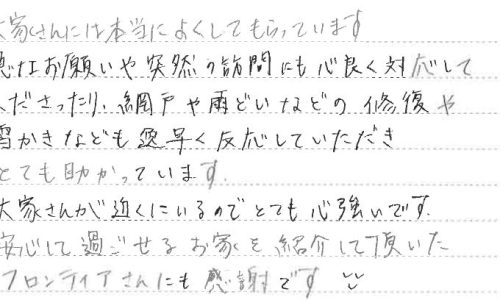 大家さんには本当によくしてもらっています
急なお願いや突然の訪問にも心良く対応して
くださったり、網戸や雨どいなどの修復や
雪かきなども 早く反応していただき
とても助かっています.
大家さんが近くにいるのでとても心強いです.
安心して過ごせるお家を紹介して頂いた
フロンティアさんにも感謝です